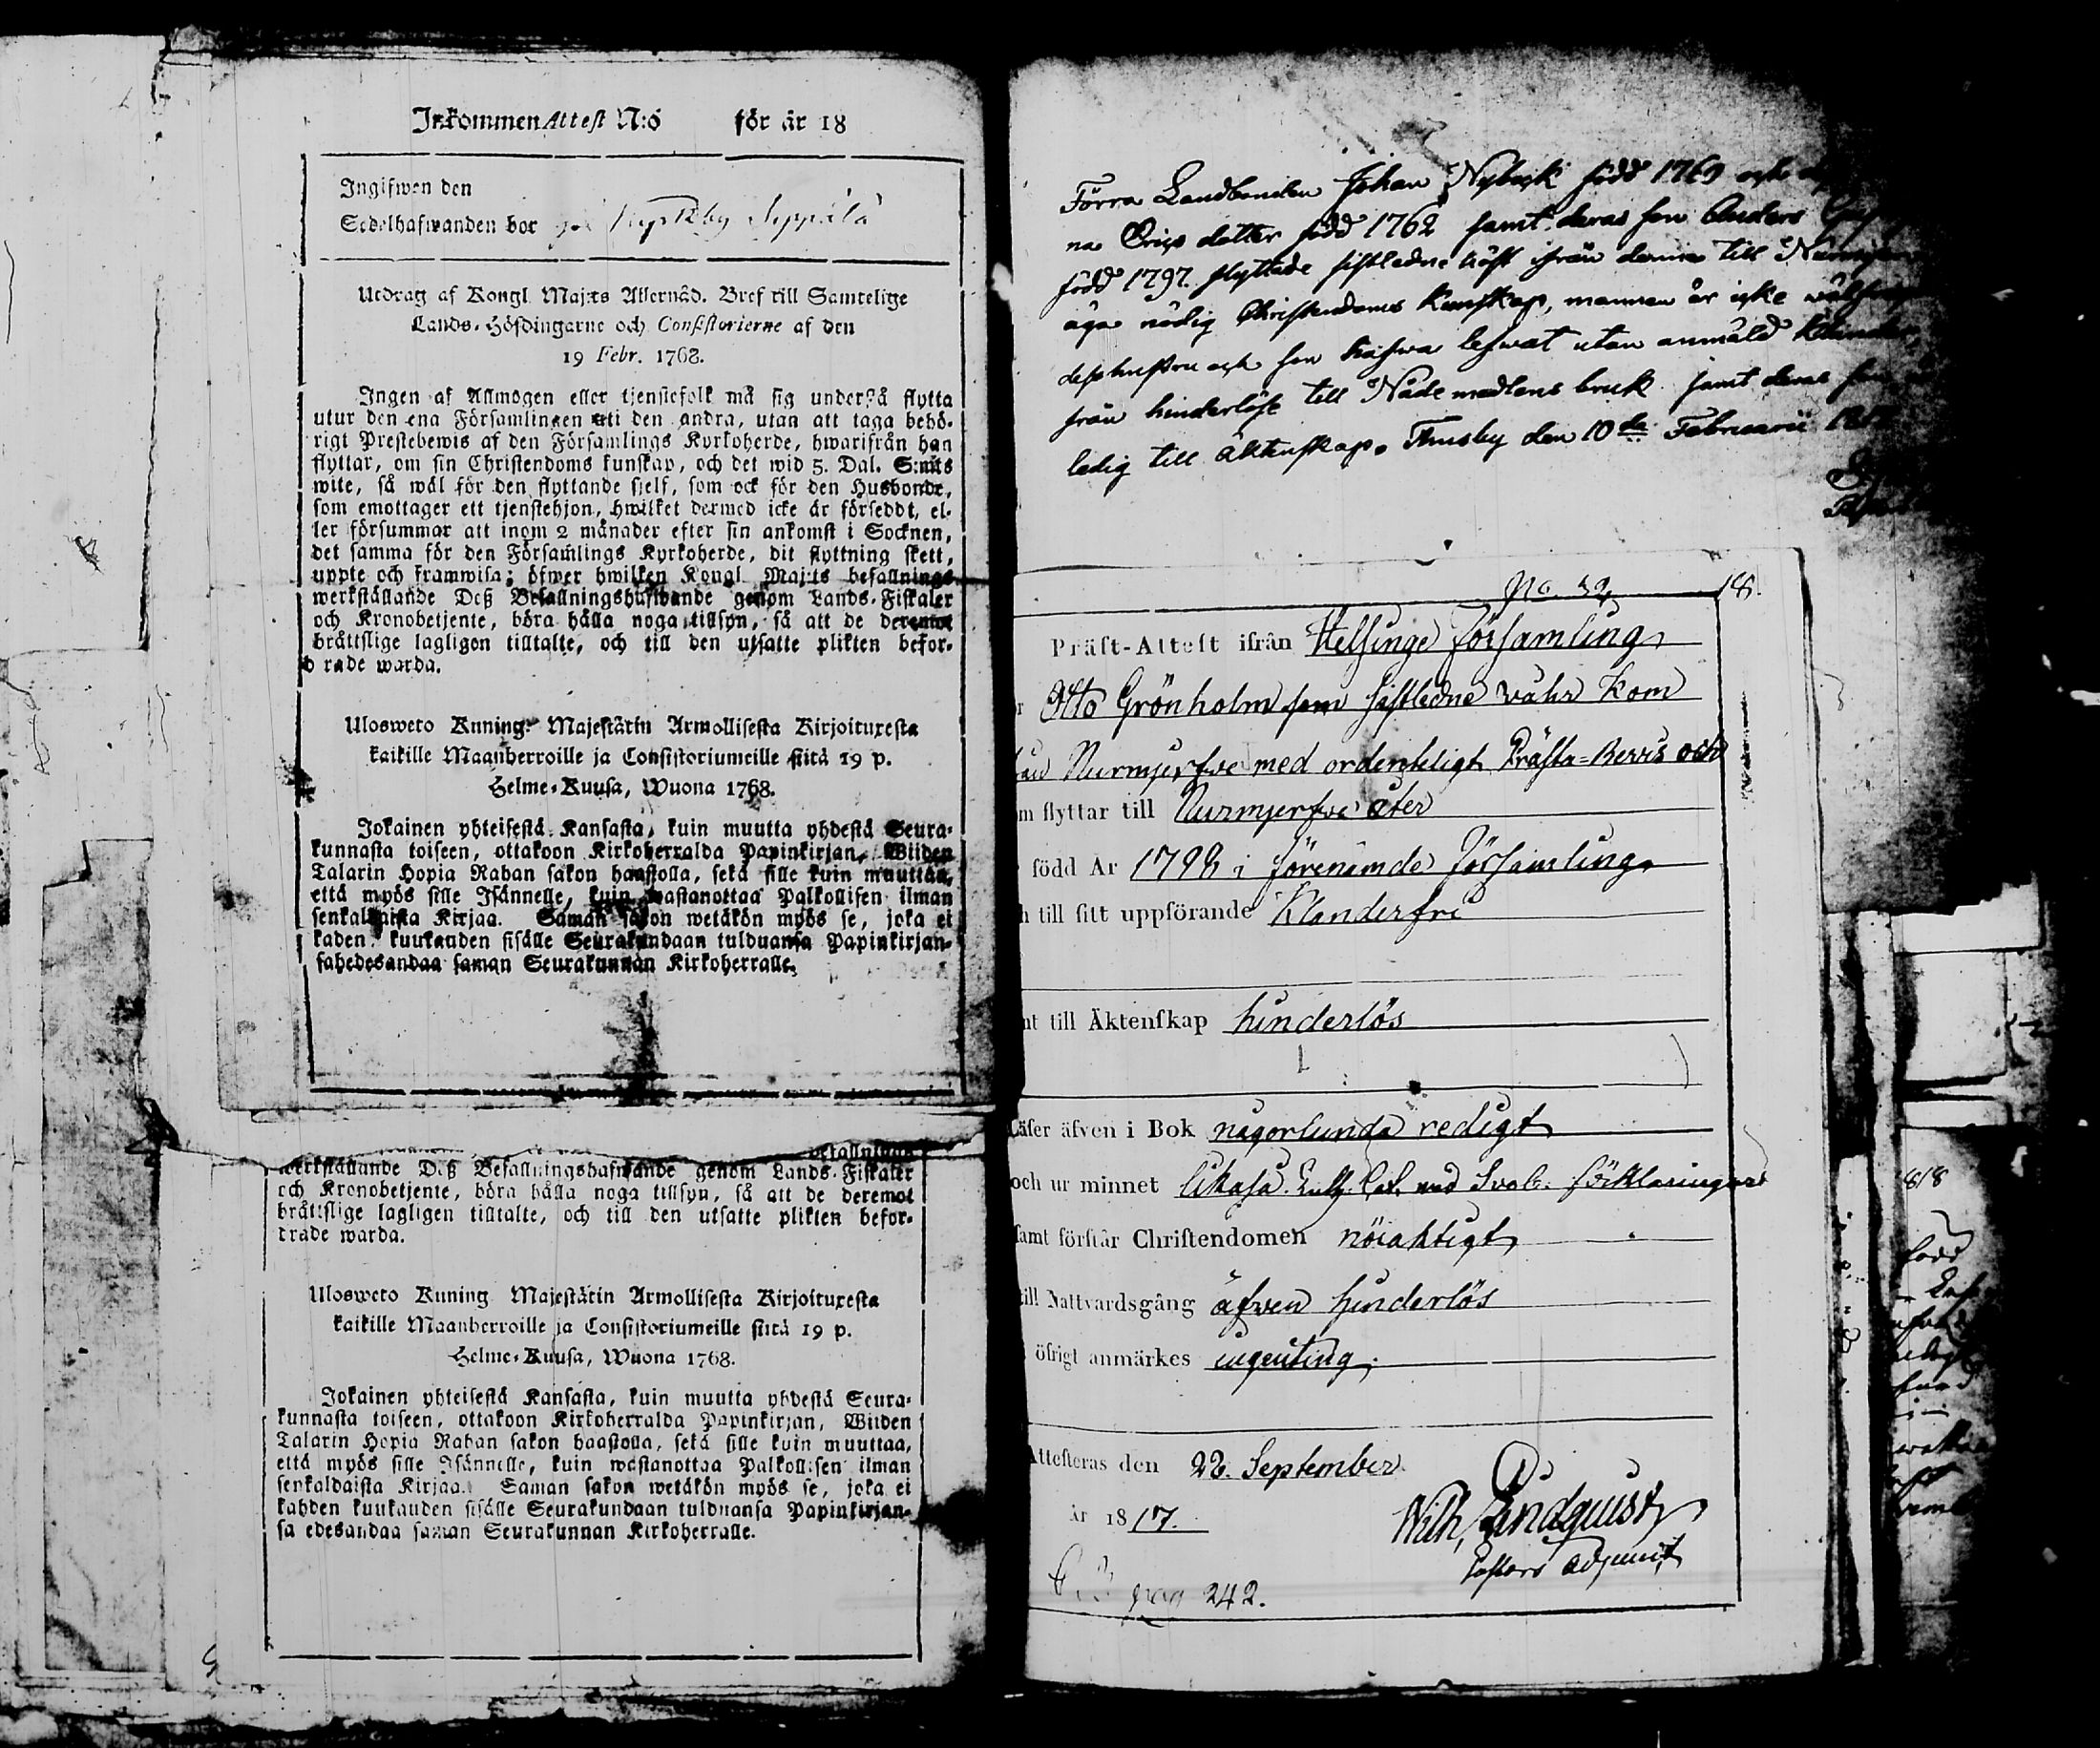 Inkommen Attest N:ó för år 18
Ingifwen den
Sedelhafwanden bor Seppälä
Utdrag af Kongl. Maj:ts Allernåd. Bref till Samtelige
Lands-Höfdingarne och Consistorierne af den
19 Febr. 1768.
Ingen af Allmogen eller tjenstefolk må sig understå flytta
utur den ena Församlingen uti den andra, utan att taga behö-
rigt Prestebewis af den Församlings Kyrkoherde, hwarifrån han
flyttar, om sin Christendoms kunskap, och det wid 5. Dal. S:mts
wite, så wäl för den flyttande sjelf, som ock för den Husbonde,
som emottager ett tjenstehjon, hwilket dermed icke är försedt, el-
ler försummar att inom 2 månader efter sin ankomst i Socknen,
det samma för den Församlings Kyrkoherde, dit flyttning skett,
uppte och framwisa; öfwer hwilken Kongl. Maj:ts befallnings
werkställande Deß Befallningshafwande genom Lands-Fiskaler
och Kronobetjente, böra hålla noga tillsyn, så att de deremot
bråttslige lagligen tilltalte, och till den utsatte plikten befor-
drade warda.
Ulosweto Kuning. Majestätin Armollisesta Kirjoituxesta
kaikille Maanherroille ja Consistoriumeille siitä 19 p.
Helme-Kuusa, Wuona 1768.
Jokainen yhteisestä Kansasta, kuin muutta yhdestä Seura-
kunnasta toiseen, ottakoon Kirkoherralda Papinkirjan, Wiiden
Talarin Hopia Rahan sakon haastolla, sekä sille kuin muuttaa,
että myös sille Isännelle, kuin wastanottaa Palkollisen ilman
senkaldaista Kirjaa. Saman sakon wetäkön myös se, joka ei
kahden kuukauden sisälle Seurakundaan tulduansa Papinkirjan-
sa edesandaa saman Seurakunnan Kirkoherralle.
befallnings
werkställande Deß Befallningshafwande genom Lands-Fiskaler
och Kronobetjente, böra hålla noga tillsyn, så att de deremot
bråttslige lagligen tilltalte, och till den utsatte plikten befor-
drade warda.
Ulosweto Kuning. Majestätin Armollisesta Kirjoituxesta
kaikille Maanherroille ja Consistoriumeille siitä 19 p.
Helme-Kuusa, Wuona 1768.
Jokainen yhteisestä Kansasta, kuin muutta yhdestä Seura-
kunnasta toiseen, ottakoon Kirkoherralda Papinkirjan, Wiiden
Talarin Hopia Rahan sakon haastolla, sekä sille kuin muuttaa,
että myös sille Isännelle, kuin wastanottaa Palkollisen ilman
senkaldaista Kirjaa. Saman sakon wetäkön myös se, joka ei
kahden kuukauden sisälle Seurakundaan tulduansa Papinkirjan-
sa edesandaa saman Seurakunnan Kirkoherralle.
Förra Landbonden Johan Nybeck född 1769 och
na Erics dotter född 1762 samt deras son Anders
född 1797. flyttade sistledne höst ifrån denna till
äga nödig Christendoms Kunskap, mannen är icke
dess hustru och son hafwa lefwat utan anmäld
från hinderlöse till Nådemedlens bruk samt deras son
ledig till äktenskap. Thusby den 10de Februarii
No. 18
Präst-Attest ifrån Helsinge Församling
Otto Grönholm som sistledne våhr Kom
Nurmjerfwe med ordenteligt Prästa-Bevis och
m flyttar till Nurmjerfwe åter
född År 1798 i förenämde Församling
h till sitt uppförande Klanderfri
nt till Äktenskap hinderlös
Läser äfven i Bok någorlunda redigt
och ur minnet likaså Luth. Cat. med Sveb. förklaringar
samt förstår Christendomen nöiaktigt
till Nattvardsgång äfven hinderlös
öfrigt anmärkes ingenting.
Attesteras den 22. September
År 1817.
Wilh. Lindquist
Pastors Adjunct
pag 242.
818